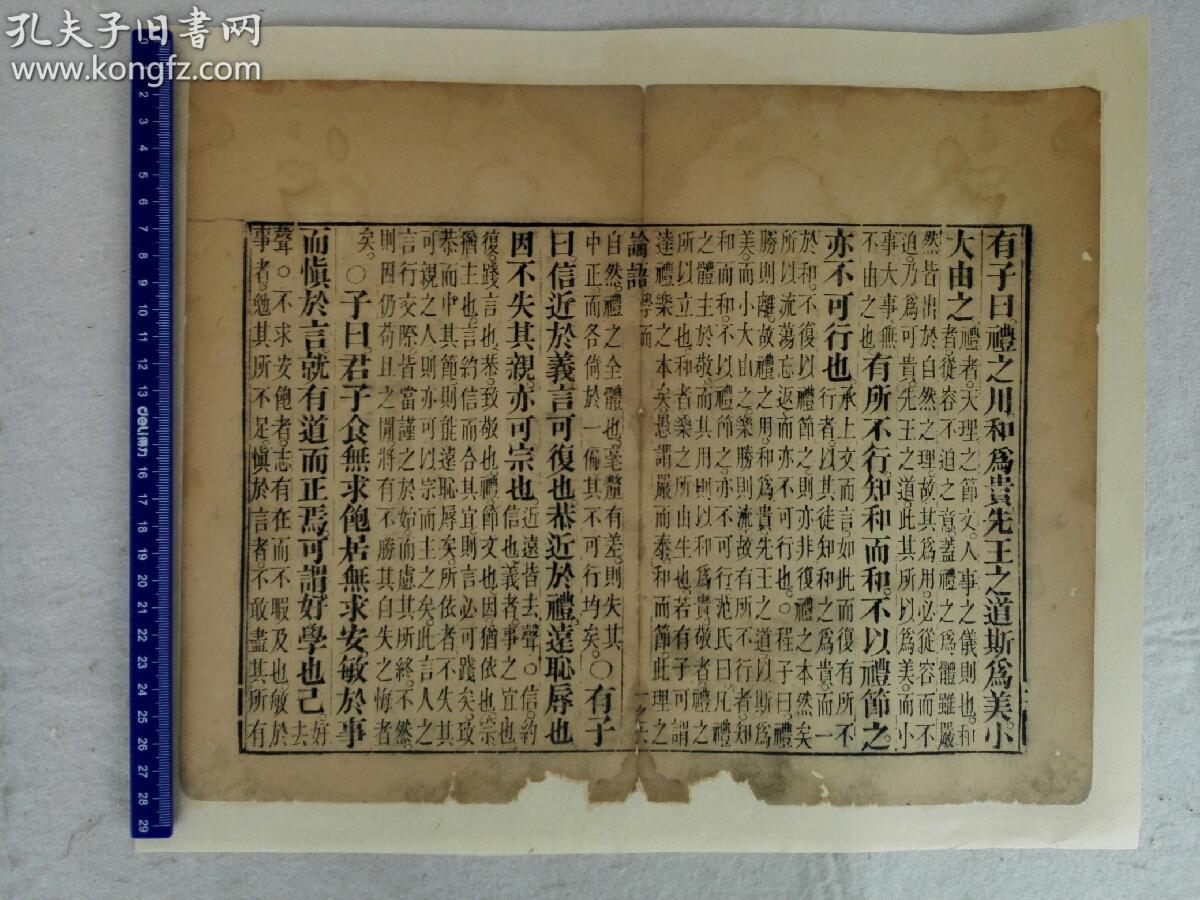 孔夫子旧书网
www.kongfz.com
有子曰禮之用和爲貴先王之道斯爲美小
大由之
禮者天理之節文人事之儀則也和
者從容不迫之意蓋禮之爲體雖嚴
然皆出於自然之理故其爲用必從容而不
迫乃爲可貴先王之道此其所以爲美而小
事大事無
不由之也
有所不行知和而和不以禮節之
亦不可行也
承上文而言如此而復有所不
行者以其徒知和之爲貴而一
於和不復以禮節之則亦非復禮之本然矣
所以流蕩忘返而亦不可行也○程子曰禮
勝則離故禮之用和爲貴先王之道以斯爲
美而小大由之樂勝則流故有所不行者知
和而和不以禮節之亦不可行范氏曰凡禮
之體主於敬而其用則以和爲貴敬者禮之
所以立也和者樂之所由生也若有子可謂
達禮樂之本矣愚謂嚴而泰和而節此理之
論語 學而
自然禮之全體也毫釐有差則失其
中正而各倚於一偏其不可行均矣
○有子
曰信近於義言可復也恭近於禮遠恥辱也
因不失其親亦可宗也
近遠皆去聲○信約
信也義者事之宜也
復踐言也恭致敬也禮節文也因猶依也宗
猶主也言約信而合其宜則言必可踐矣致
恭而中其節則能遠恥辱矣所依者不失其
可親之人則亦可以宗而主之矣此言人之
言行交際皆當謹之於始而慮其所終不然
則因仍苟且之間將有不勝其自失之悔者
矣○子曰君子食無求飽居無求安敏於事
而慎於言就有道而正焉可謂好學也已
好去
聲○不求安飽者志有在而不暇及也敏於
事者勉其所不足慎於言者不敢盡其所有
0 2 3 4 5 6 7 8 9 10 11 12 13 deli得力 16 17 18 19 20 21 22 23 24 25 26 27 28 29